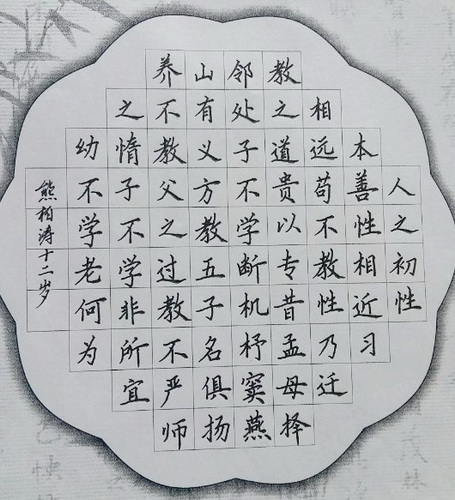 人之初性
本善性相近习
相远苟不教性乃迁
教之道贵以专昔孟母择
邻处子不学断机杼窦燕
山有义方教五子名俱扬
养不教父之过教不严师
之惰子不学非所宜
幼不学老何为
熊柏涛十二岁